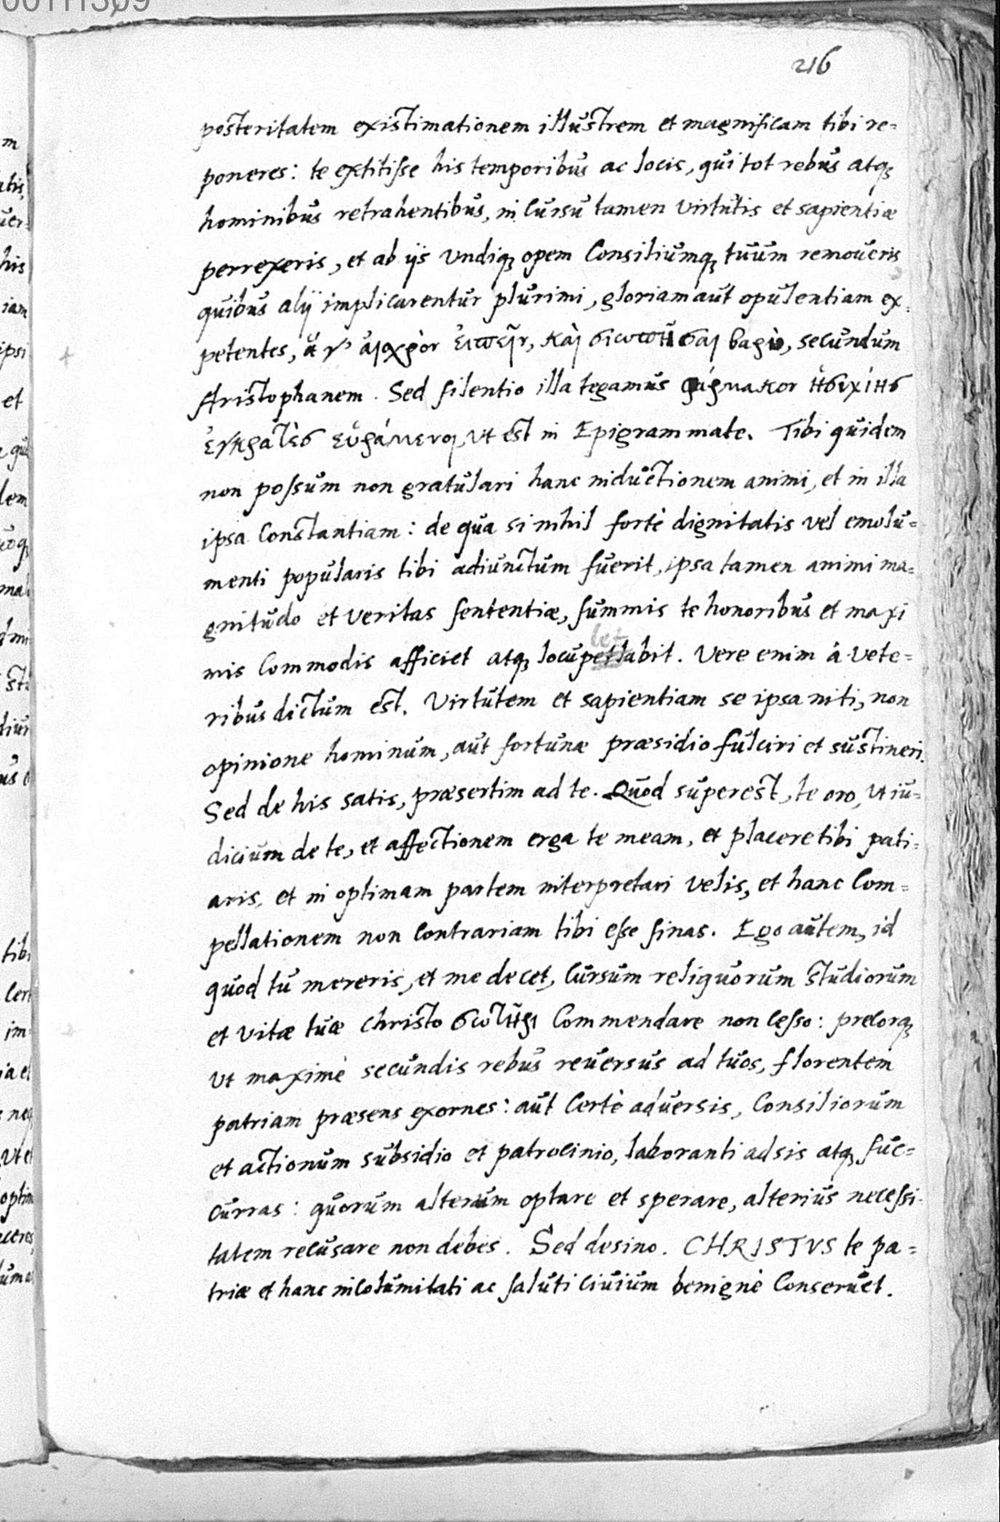 216
posteritatem existimationem illustrem et magnificam tibi re=
poneres: te extitisse his temporibus ac locis, qui tot rebus atq;
hominibus retrahentibus, in cursu tamen virtutis et sapientiæ
perrexeris, et ab ijs undiq; opem consiliumq; tuum removeris
quibus alij implicarentur plurimi, gloriam aut opulentiam ex=
petentes, ἅ γ' αἰσχρὸν εἰπεῖν, καὶ σιωπῆσαι βαρὺ, secundum
Aristophanem. Sed silentio illa tegamus φάρμακον ἡσυχίης
ἐγκρατὲς εὑράμενοι, ut est in Epigrammate. Tibi quidem
non possum non gratulari hanc inductionem animi, et in illa
ipsa constantiam: de qua si nihil fortè dignitatis vel emolu=
menti popularis tibi adiunctum fuerit, ipsa tamen animi ma=
gnitudo et veritas sententiæ, summis te honoribus et maxi
mis commodis afficiet atq; locupletabit. Vere enim à vete=
ribus dictum est. Virtutem et sapientiam se ipsa niti, non
opinione hominum, aut fortunæ præsidio fulciri et sustineri.
Sed de his satis, præsertim ad te. Quod superest, te oro, ut iu=
dicium de te, et affectionem erga te meam, et placere tibi pati=
aris, et in optimam partem interpretari velis, et hanc com=
pellationem non contrariam tibi esse sinas. Ego autem, id
quod tu mereris, et me decet, cursum reliquorum studiorum
et vitæ tuæ Christo σωτῆρι commendare non cesso: precorq;
ut maximè secundis rebus reversus ad tuos, florentem
patriam præsens exornes: aut certè adversis, consiliorum
et actionum subsidio et patrocinio, laboranti adsis atq; suc=
curras: quorum alterum optare et sperare, alterius necessi=
tatem recusare non debes. Sed desino. CHRISTVS te pa=
triæ et hanc incolumitati ac saluti civium benignè conservet.